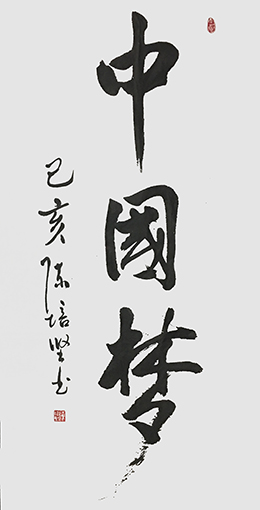 中國梦
己亥陈培坚书